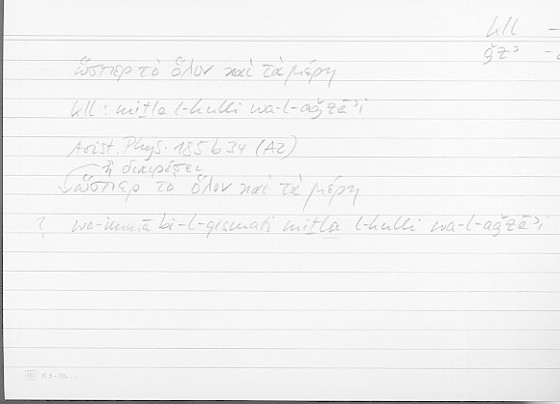 kll –
ǧzʾ –
ὥσπερ τὸ ὅλον καὶ τὰ μέρη
kll : miṯla l-kulli wa-l-aǧzāʾi
Arist. Phys. 185 b 34 (A2)
ἢ διαιρέσει
ὥσπερ τὸ ὅλον καὶ τὰ μέρη
? wa-immā bi-l-qismati miṯla l-kulli wa-l-aǧzāʾi